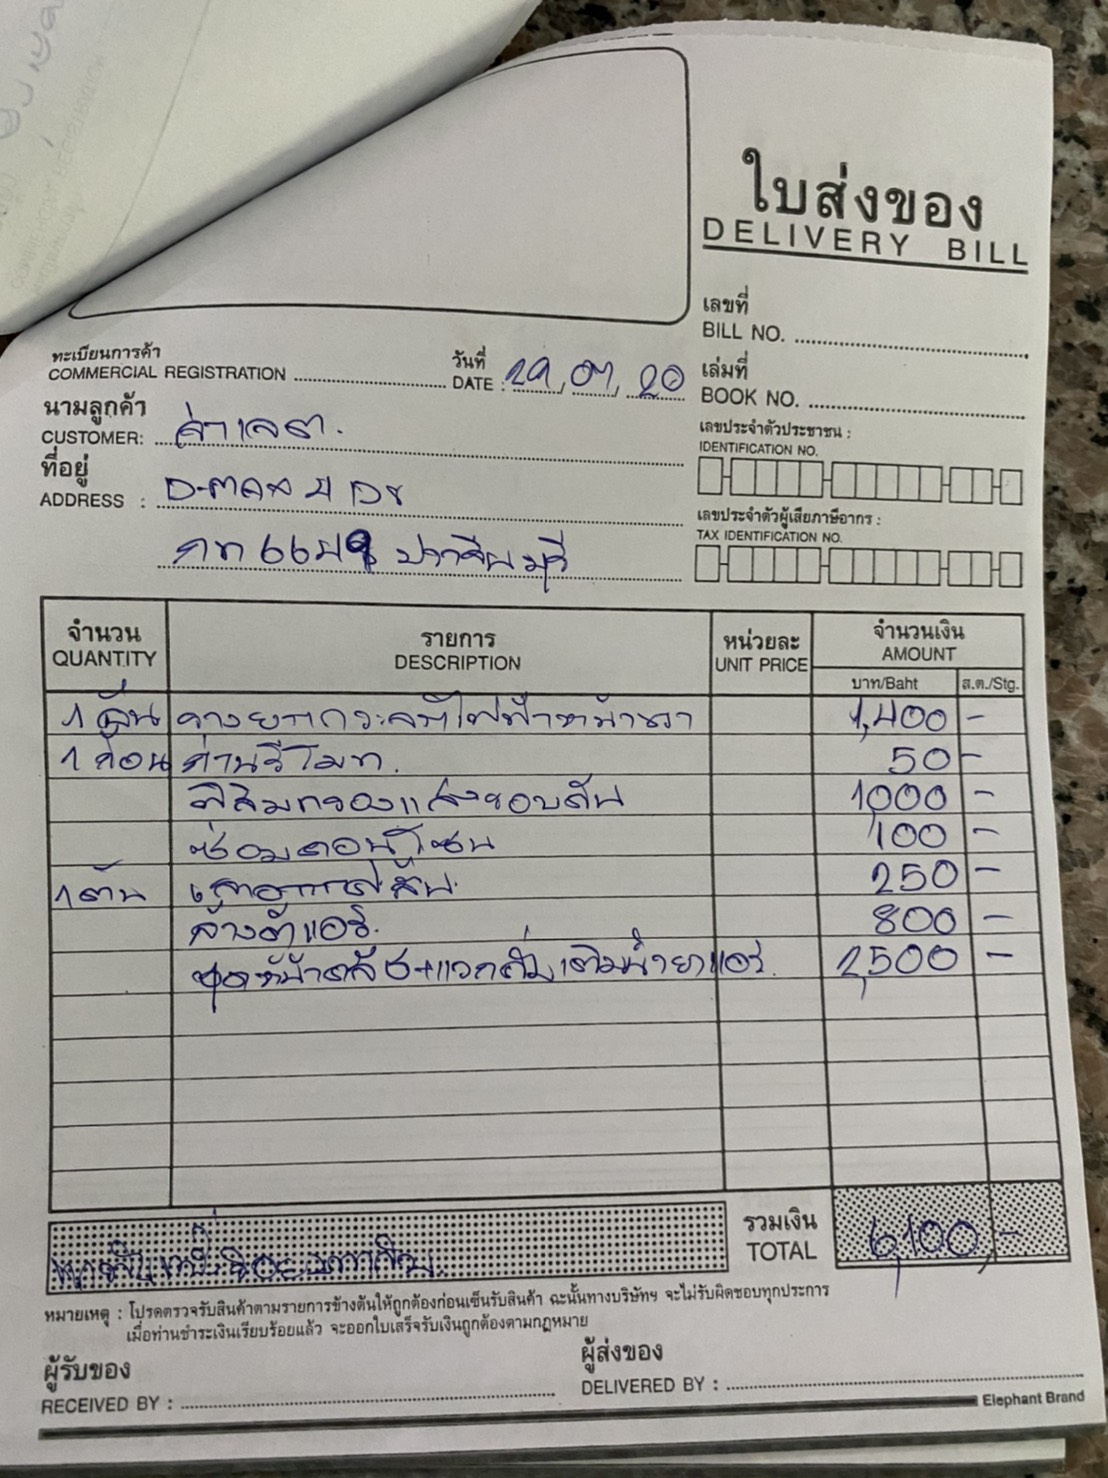 ใบส่งของ
DELIVERY BILL
เลขที่
BILL NO.
ทะเบียนการค้า
COMMERCIAL REGISTRATION
วันที่
DATE : 29, 07, 20
เล่มที่
BOOK NO.
นามลูกค้า
CUSTOMER:
เลขประจำตัวประชาชน :
IDENTIFICATION NO.
ที่อยู่
ADDRESS :
เลขประจำตัวผู้เสียภาษีอากร :
TAX IDENTIFICATION NO.
ปราจีนบุรี
จำนวน QUANTITY รายการ DESCRIPTION หน่วยละ UNIT PRICE จำนวนเงิน AMOUNT
บาท/Baht ส.ต./Stg.
1 อัน รางยกกระจกไฟฟ้าหน้าขวา 1,400 -
1 ก้อน ถ่านรีโมท. 50 -
ฟิล์มกรองแสงรอบคัน 1000 -
ซ่อม 100 -
1 ต้น 250 -
ล้างตู้แอร์. 800 -
ชุดหน้าคลัช+แวคคั่มเติมน้ำยาแอร์. 2,500 -
รวมเงิน
TOTAL 6,100, -
หมายเหตุ : โปรดตรวจรับสินค้าตามรายการข้างต้นให้ถูกต้องก่อนเซ็นรับสินค้า ฉะนั้นทางบริษัทฯ จะไม่รับผิดชอบทุกประการ
เมื่อท่านชำระเงินเรียบร้อยแล้ว จะออกใบเสร็จรับเงินถูกต้องตามกฎหมาย
ผู้รับของ
RECEIVED BY :
ผู้ส่งของ
DELIVERED BY :
Elephant Brand